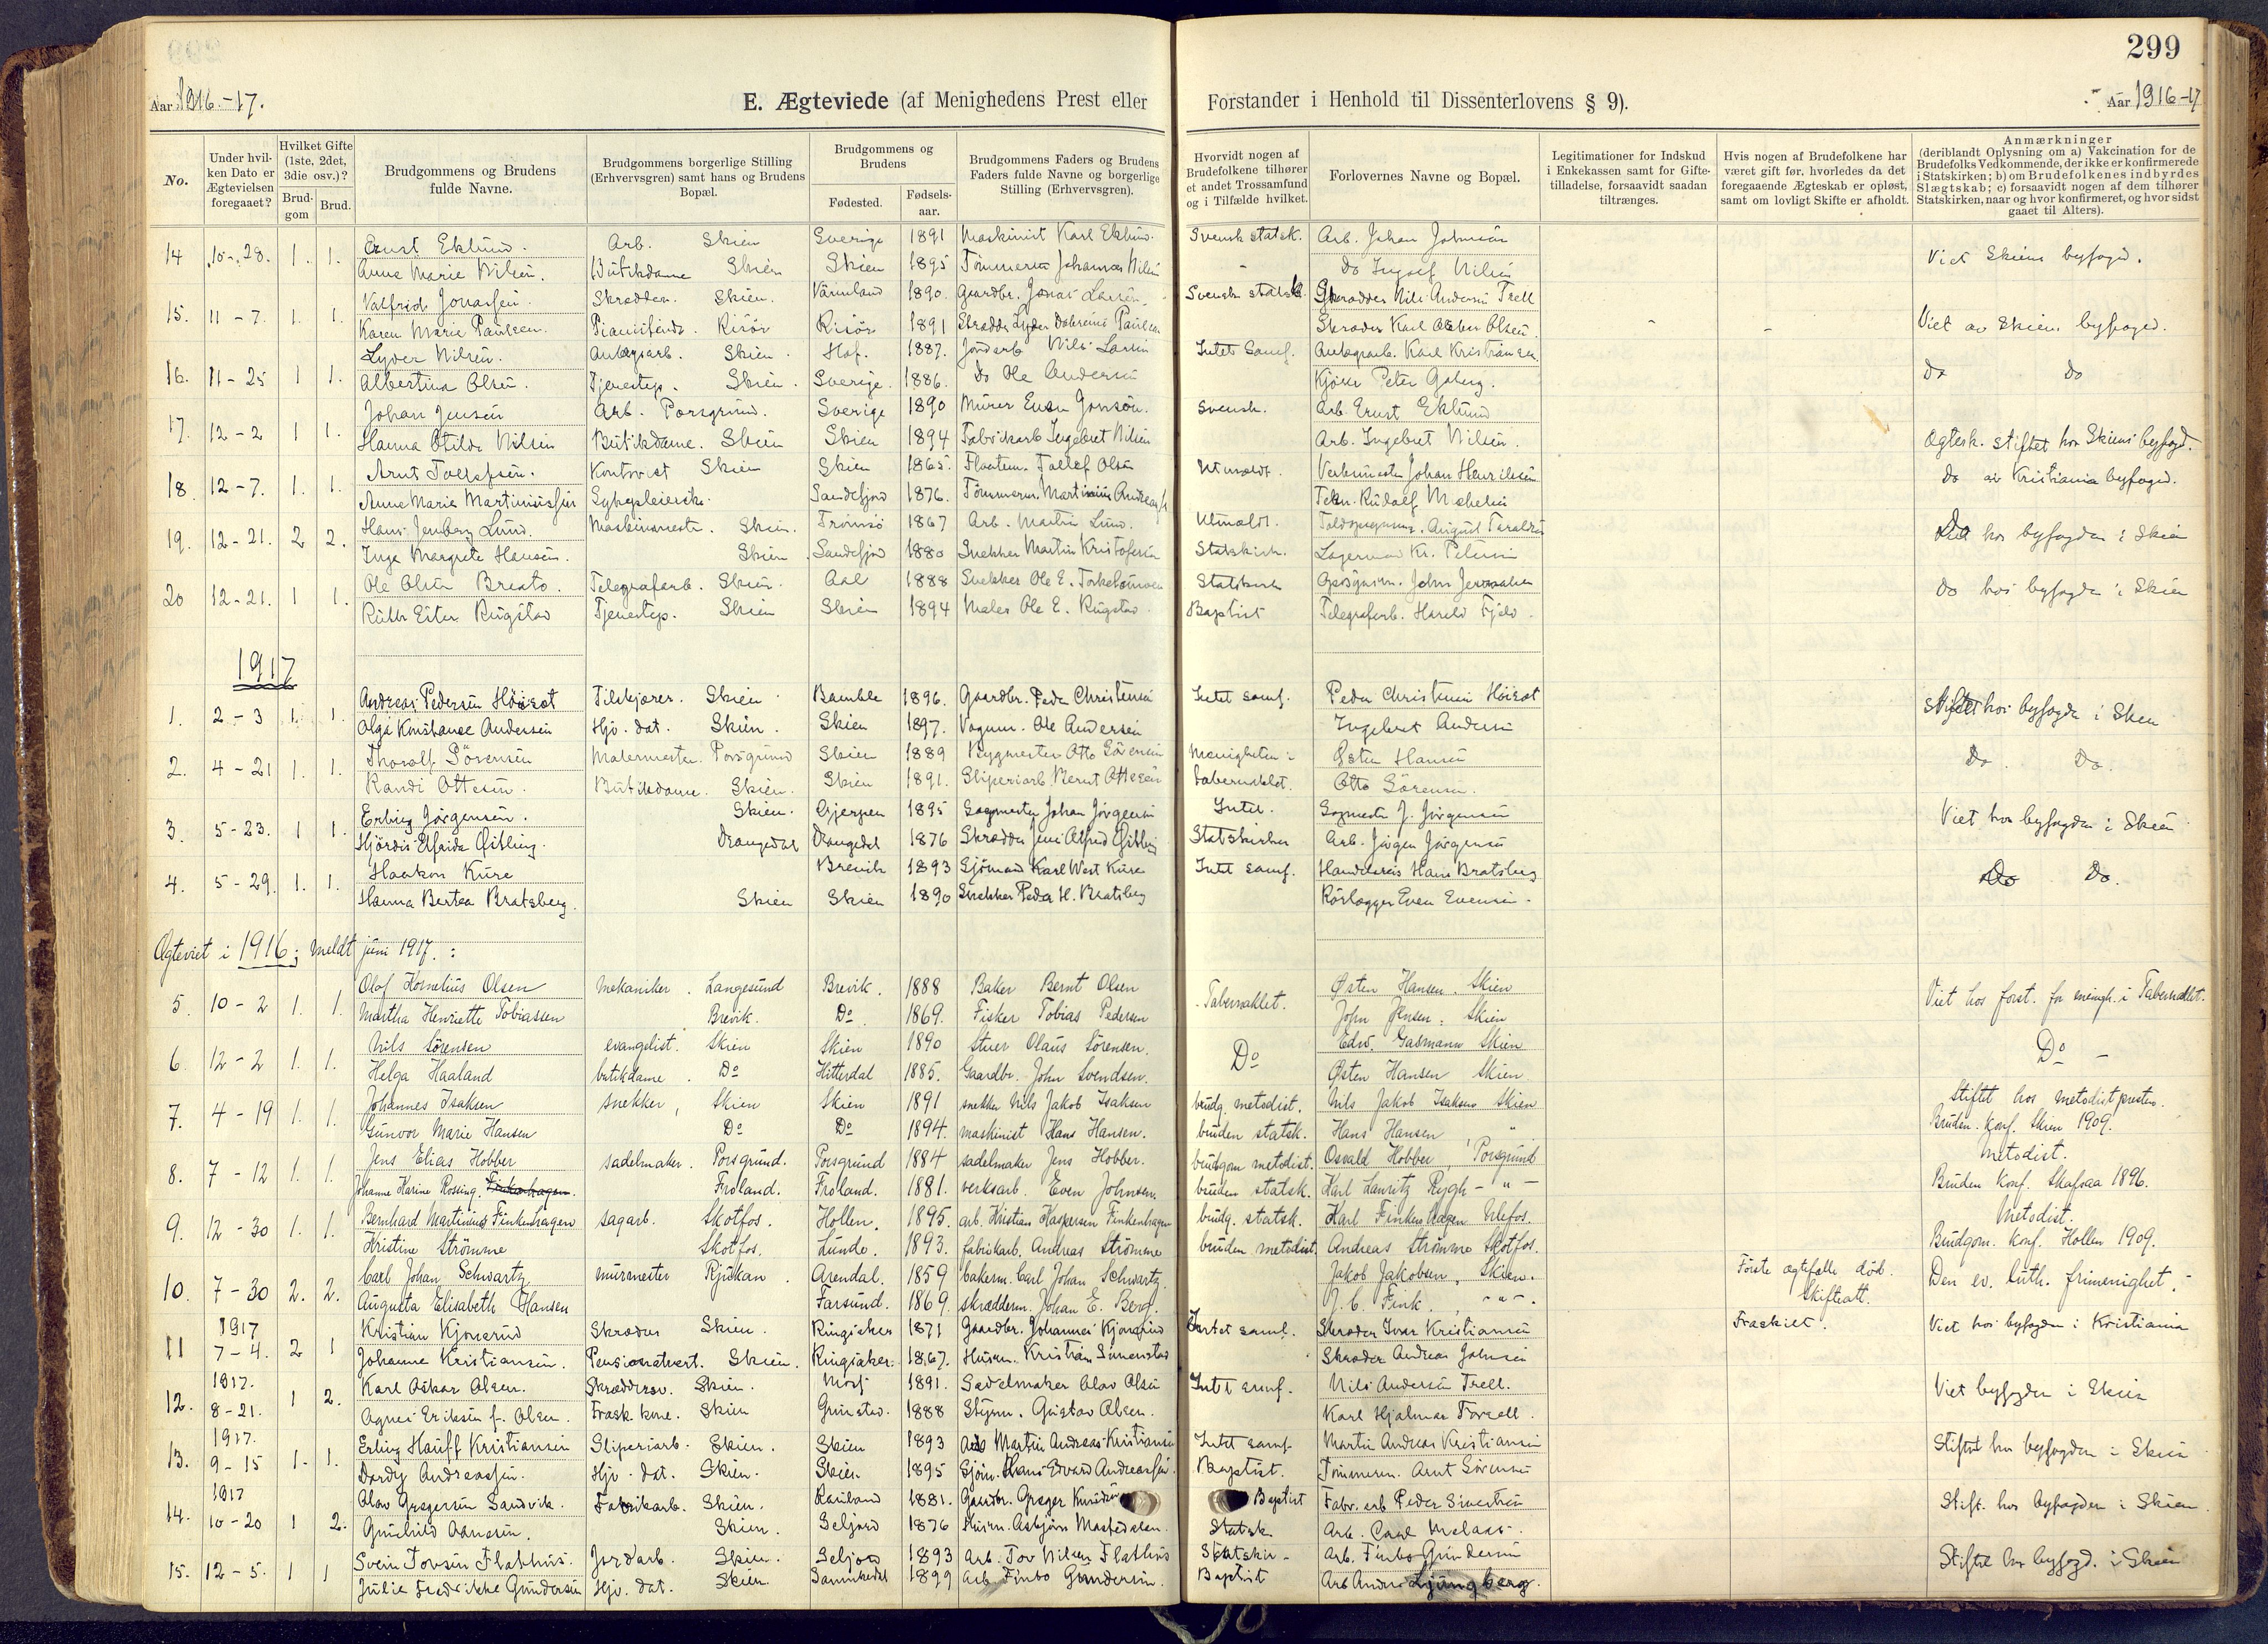 299
Aar 1916.-17.
E. Ægteviede (af Menighedens Prest eller Forstander i Henhold til Dissenterlovens § 9).
Aar 1916-17
No.
Under hvilken Dato er Ægtevielsen foregaaet?
Hvilket Gifte (1ste, 2det, 3die osv.)?
Brudgom
Brud.
Brudgommens og Brudens fulde Navne.
Brudgommens borgerlige Stilling (Erhvervsgren) samt hans og Brudens Bopæl.
Brudgommens og Brudens
Fødested.
Fødselsaar.
Brudgommens Faders og Brudens Faders fulde Navne og borgerlige Stilling (Erhvervsgren).
Hvorvidt nogen af Brudefolkene tilhører et andet Trossamfund og i Tilfælde hvilket.
Forlovernes Navne og Bopæl.
Legitimationer for Indskud i Enkekassen samt for Giftetilladelse, forsaavidt saadan tiltrænges.
Hvis nogen af Brudefolkene har været gift før, hvorledes da det foregaaende Ægteskab er opløst, samt om lovligt Skifte er afholdt.
Anmærkninger (deriblandt Oplysning om a) Vakcination for de Brudefolks Vedkommende, der ikke er konfirmerede i Statskirken; b) om Brudefolkenes indbyrdes Slægtskab; c) forsaavidt nogen af dem tilhører Statskirken, naar og hvor konfirmeret, og hvor sidst gaaet til Alters).
14 10-28. 1. 1. Ernst Eklund. Arb. Skien Sverige 1891 Maskinist Karl Eklund. Svensk statsk. Arb. Johan Johnsen Viet Skiens byfoged.
Anne Marie Nilsen. Butikdame Skien Skien 1895 Tømmerm Johannes Nilsen - Do Ingolf Nilsen
15. 11-7. 1. 1. Valfrid Jonassen. Skrædder. Skien. Värmland 1890. Gaardbr. Jonas Larsen. Svensk statsk. Skrædder Nils Andersen Trell Viet av Skiens byfoged.
Karen Marie Paulsen. Risör Risör 1891 Skrædder Lyder Paulsen Skræder Karl Oskar Olsen
16. 11-25 1 1. Lyder Nilsen. Anlegsarb. Skien. Hof. 1887. Jordarb Nils Larsen Intet Samf. Anlægsarb. Karl Kristiansen. Do Do
Albertina Olsen. Tjenestep. Skien. Sverige. 1886. Do Ole Andersen Kjører Peter
17. 12-2 1 1. Johan Jensen Arb. Porsgrund. Sverige 1890 Murer Jonson. Svensk. Arb. Ernst Eklund Ægtesk. stiftet hos Skiens byfogd.
Hanna Otilde Nilsen Butikdame. Skien Skien 1894 Fabrikarb Ingebret Nilsen Arb. Ingebret Nilsen.
18. 12-7. 1. 1. Arnt Tollefsen. Kontorist Skien Skien 1865. Tollef Olsen Utmeldt. Johan Henriksen Do av Kristiania byfoged.
Anne Marie Martiniusen Sykepleierske. Sandefjord 1876. Tømmerm. Martinius Andreas Rudolf
19. 12-21. 2 2. Hans Jenberg Lund. Maskinmester. Skien. Tromsö 1867 Arb. Martin Lund. Utmeldt. August Taraldsen Do hos byfogden i Skien
Inga Margrete Hansen. Skien Sandefjord 1880 Snekker Martin Kristofersen Statskirk. Lagermand Kr. Petersen
20 12-21. 1 1. Ole Olsen Breato. Telegrafarb. Skien. Aal 1888 Snekker Ole E. Statskirk John Do hos byfogden i Skien
Ruth Ester Rugstad Tjenestep. Skien Skien 1894 Maler Ole E. Rugstad. Baptist Telegrafarb. Harald Fjeld.
1917
1. 2-3 1. 1. Andreas Pedersen Höiset Tilskjærer. Skien Bamble 1896. Gaardbr. Peder Christensen Intet samf. Peder Christensen Höiset Stiftet hos byfogden i Skien
Olga Konstance Andersen Hjv. dat. Skien. Skien 1897. Vognm. Ole Andersen Ingebret Andersen
2. 4-21 1. 1. Thorolf Sörensen Malermester. Porsgrund Skien 1889 Bygmester Otto Sörensen Menigheten i Østen Hansen Do. Do.
Randi Ottesen. Butikdame. Skien. Skien 1891. Sliperiarb. Bernt Ottesen Tabernaklet. Otto Sörensen.
3. 5-23. 1 1. Erling Jörgensen. Skien. Gjerpen 1895 Sagmester Johan Jörgensen Intet. Sagmester J. Jörgensen Viet hos byfogden i Skien
Hjördis Elfrida Gitling. Drangedal Drangedal 1876 Skrædder Jens Alfred Gitling Statskirken Arb. Jörgen Jörgensen
4. 5-29. 1. 1. Haakon Kure Brevik 1893 Sjömand Karl West Kure Intet samf. Handelsreis Hans Bratsberg Do Do.
Hanna Bertea Bratsberg. Skien Skien 1890 Snekker Peder H. Bratsberg Rörlægger Even Evensen.
Ægteviet i 1916; meldt juni 1917. :
5. 10-2 1. 1. Olaf Kornelius Olsen mekaniker. Langesund Brevik. 1888 Baker Bernt Olsen Tabernaklet. Østen Hansen. Skien Viet hos forst. for menigh. i Tabernaklet.
Martha Henriette Tobiassen Brevik. Do. 1869. Fisker Tobias Pedersen John Jensen. Skien
6. 12-2 1. 1. Nils Sörensen evangelist. Skien Skien 1890 Stuer Olaus Sörensen. Do Edw. Gasmann Skien Do -
Helga Haaland butikdame. Do Hitterdal 1885. Gaardbr. John Svendsen. Østen Hansen Skien
7. 4-19 1. 1. Johannes Isaksen snekker, Skien Skien 1891 snekker Nils Jakob Isaksen brudg. metodist. Nils Jakob Isaksen Skien Stiftet hos metodistpresten.
Gunvor Marie Hansen Do Do 1894. maskinist Hans Hansen. bruden statsk. Hans Hansen " Bruden. konf. Skien 1909.
8. 7-12 1. 1. Jens Elias Hobber sadelmaker. Porsgrund. Porsgrund 1884 sadelmaker Jens Hobber. brudgom metodist. Osvald Hobber, Porsgrund Metodist.
Johanne Karine Rossing. Finkenhagen. Froland. Froland. 1881. verksarb. Even Johnsen. bruden statsk. Karl Lauritz Rygh - " - Bruden konf. Skafsaa 1896.
9. 12-30 1. 1. Bernhard Martinius Finkenhagen sagarb. Skotfos. Hollen. 1895. arb. Kristian Kaspersen Finkenhagen brudg. statsk. Karl Finkenhagen Ulefos. Metodist.
Kristine Strömme Skotfos. Lunde. 1893. fabrikarb. Andreas Strömme bruden metodist Andreas Strömme Skotfos. Brudgom. konf. Hollen 1909.
10. 7-30 2. 2. Carl Johan Schwartz murmester Rjukan. Arendal. 1859 bakerm. Carl Johan Schwartz. Jakob Jakobsen, Skien. Förste ægtefælle död. Skifteatt. Den ev. luth. frimenighet.
Augusta Elisabeth Hansen Farsund. 1869. skrædderm. Johan E. Berg. J. C. Fink. , - " -.
11 1917 7-4. 2 1 Kristian Kjonerud Skræder Skien. Ringsaker 1871 Gaardbr. Johannes Kjonerud Intet samf. Skræder Ivar Kristiansen Fraskilt. Viet hos byfogden i Kristiania
Johanne Kristiansen. Pensionatvert. Skien. Ringsaker. 1867. Husm. Kristian Skræder Andreas Johnsen
12. 1917. 8-21. 1 2. Karl Oskar Olsen. Skræddersv. Skien. Moss 1891. Sadelmaker Olav Olsen Intet samf. Nils Andersen Trell. Viet byfogden i Skien
Agnes Eriksen f. Olsen. Frask. kone. Skien Grimstad. 1888 Styrm. Gustav Olsen. Karl Hjalmar Forsell.
13. 1917. 9-15 1. 1. Erling Hauff Kristiansen Sliperiarb. Skien. Skien 1893 Arb Martin Andreas Kristiansen Intet samf. Martin Andreas Kristiansen Stiftet hos byfogden i Skien
Dordy Andreassen. Hjv. dat. Skien. Skien 1895 Sjöm. Hans Edvard Andreassen. Baptist. Tömmerm. Arnt Sörensen
14. 1917 10-20 1 2. Olav Gregersen Sandvik. Fabrikarb. Skien. Rauland 1881. Gaardbr. Greger Knudsen Baptist Fabr. arb Peder Sivertsen Stift. hos byfogden i Skien
Gunhild Skien. Seljord 1876 Husm. Asbjörn Statsk. Arb. Carl
15. 12-5. 1 1 Svein Tovsen Flathus. Jordarb. Skien. Seljord 1893 Arb. Tov Nilsen Flathus Statskir. Arb. Finbo Gundersen Stiftet hos byfogd. i Skien
Julie Fredrikke Gundersen Hjv. dat. Skien Sannikedal 1899 Arb Finbo Gundersen. Baptist Arb Ljungberg.